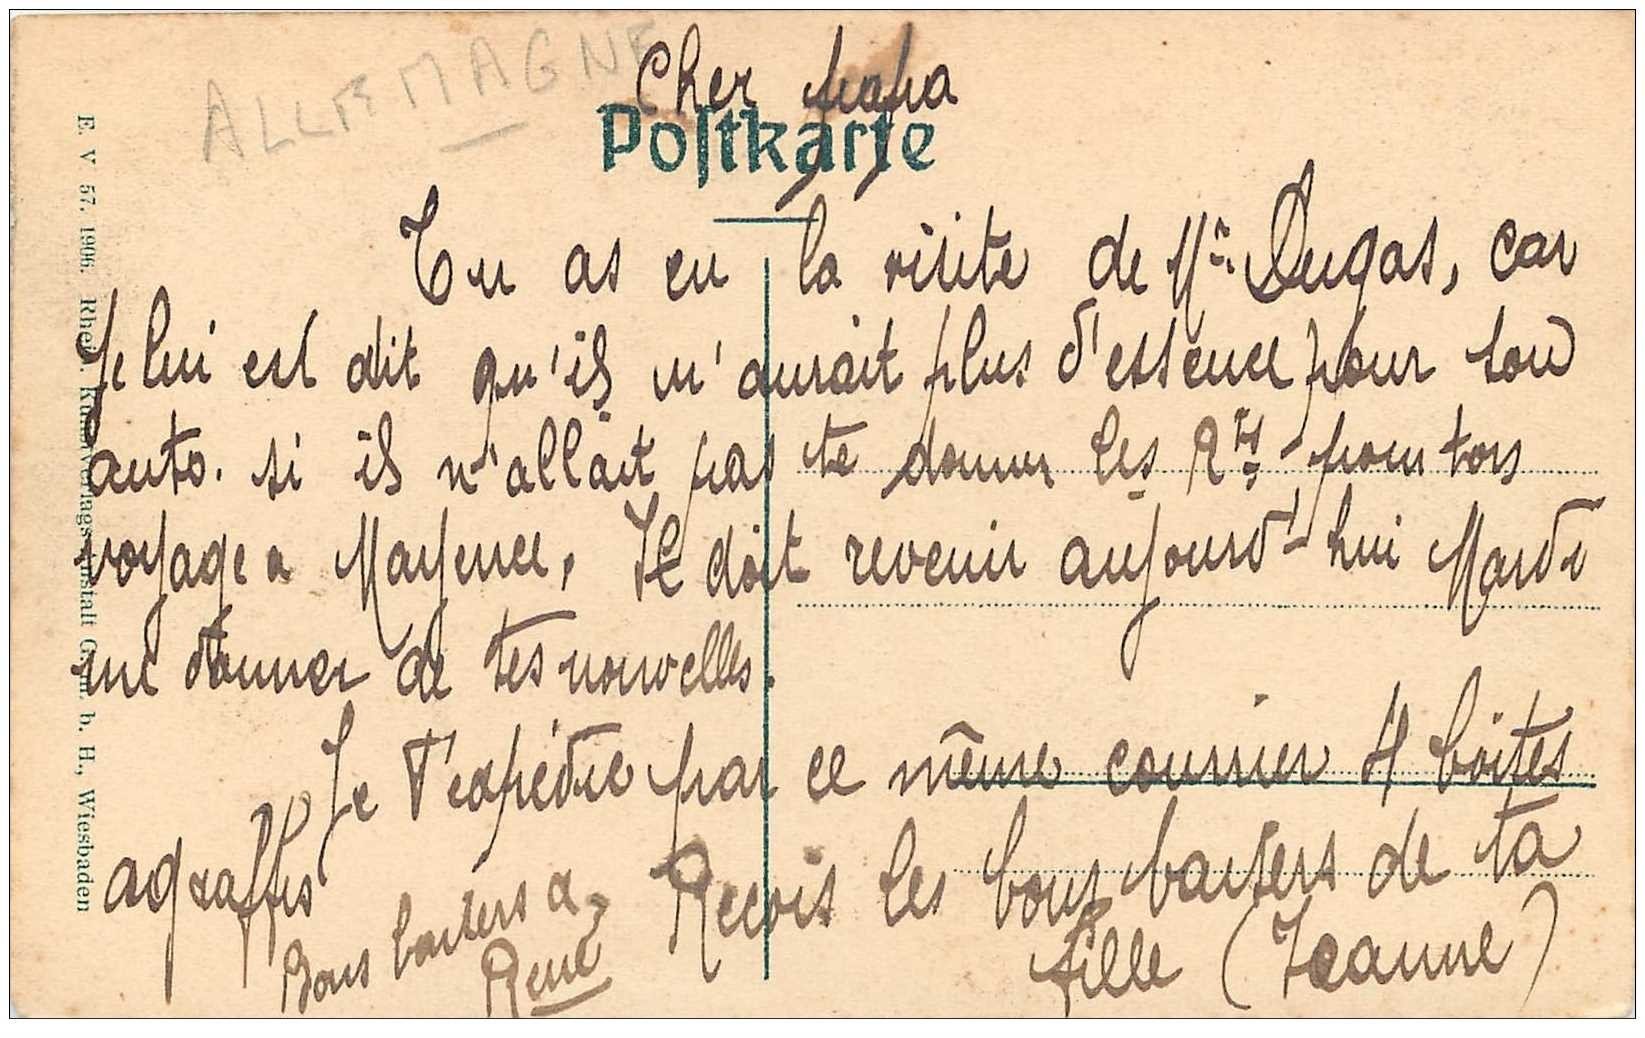 ALLEMAGNE
Cher papa
Postkarte
Tu as eu la visite de Mr. Dugas, car
Je lui est dit qu'ils n'aurait plus d'essence pour son
auto. si ils n'allait pas te donner les Rts pour ton
voyage a Mayence, Il doit revenir aujourd'hui Mardi
me donner de tes nouvelles.
Je t'expédie par ce même courrier 4 boites
agraffes
Reçois les bons baisers de ta
fille (Jeanne)
Bons baisers a
René
E. V 57. 1906. Rhein. Kunstverlagsanstalt G. m. b. H., Wiesbaden